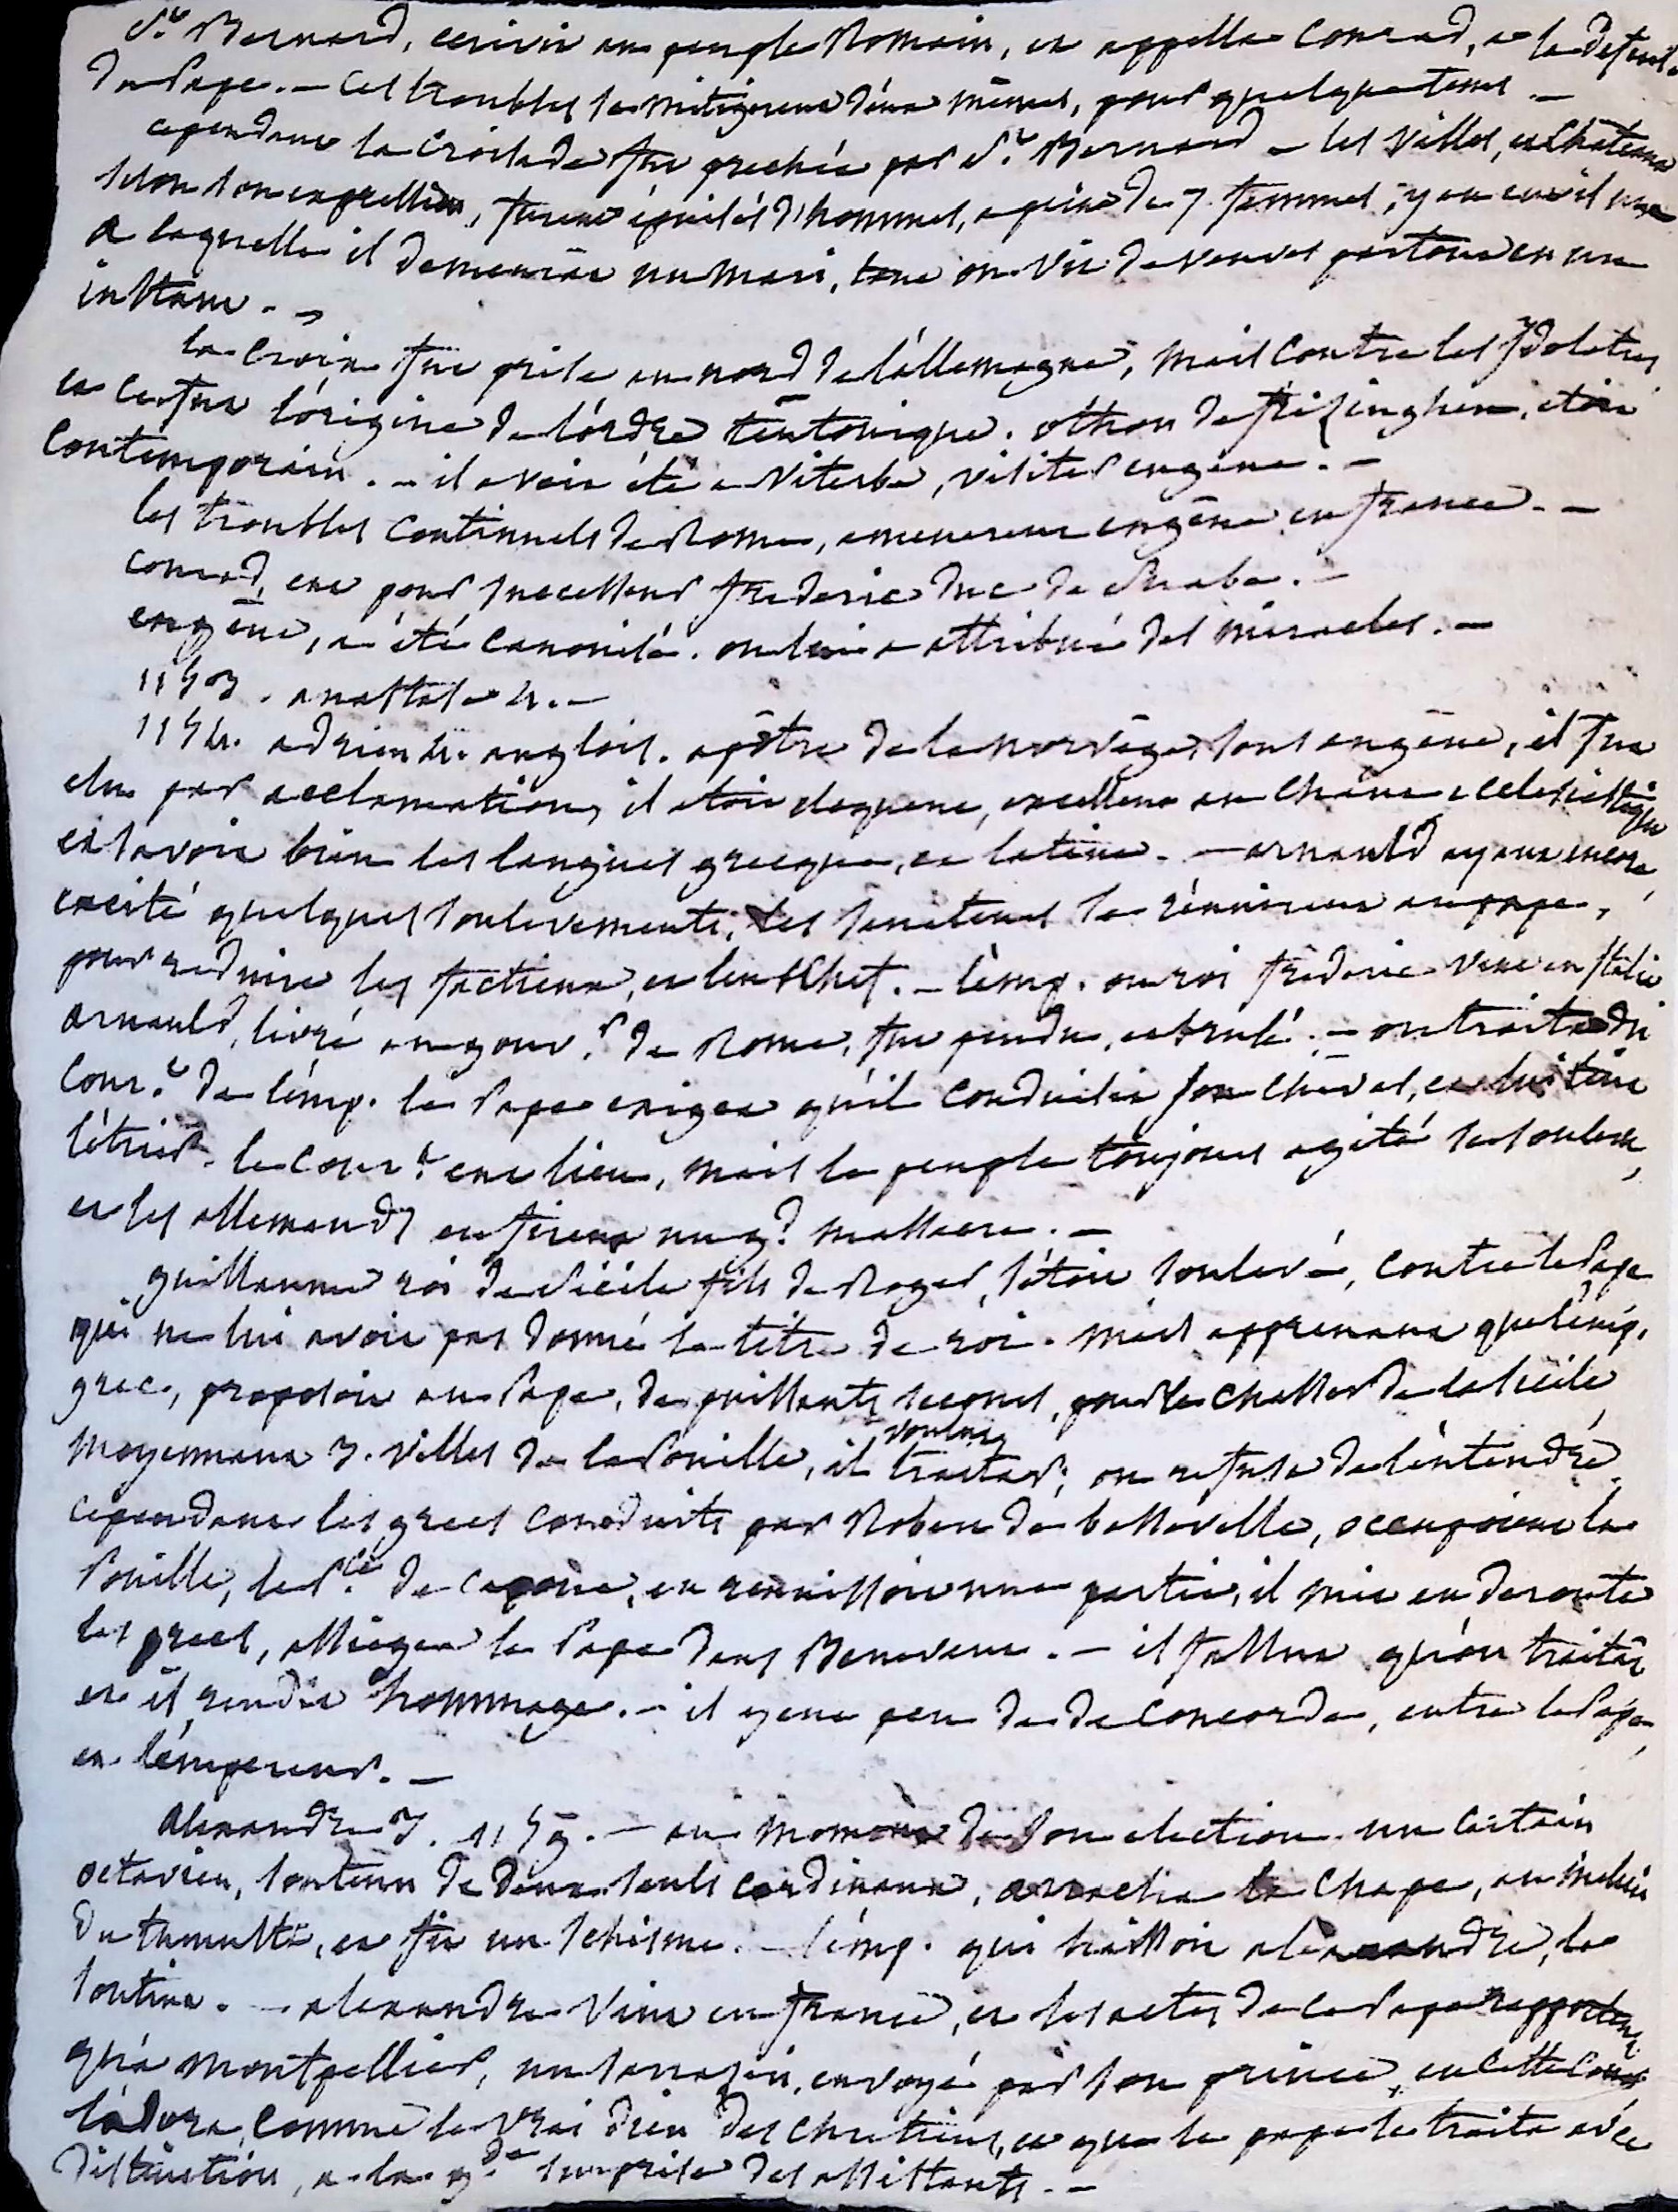 St. Bernard, ecrivit au peuple Romain, et appella Conrad, a la defense
du Pape. — Ces troubles se mitigerent d'eux mêmes, pour quelque tems. —
cependant la Croisade fut prechée par St. Bernard — les villes, et chateaux
selon son expression, furent épuisés d'hommes, a peine de 7 femmes, y en eut il une
a laquelle il demeurât un mari, tant on vit de veuves partout en un
instant. —
la Croix fut prise au nord de l'allemagne, mais contre les Idolatres
et ce fut l'origine de l'ordre teutonique. othon de frisinghen, etoit
Contemporain. — il avoit été a Viterbe, visiter eugene. —
les troubles Continuels de Rome, amenerent eugêne en france. —
Conrad, eut pour successeur frederic duc de Suabe. —
eugêne, a été canonisé. on lui a attribué des miracles. —
1153. anastase 4. —
1154. adrien 4. anglois. apôtre de la norvège, sous eugêne, il fut
elu par acclamation, il etoit eloquent, excellent au chant ecclesiastique
et savoit bien les langues grecque, et latine. — arnauld ayant encore
excité quelques soulevements, les senateurs se réunirent au pape,
pour reduire les factieux, et leur chef. — l'emp. ou roi frederic vint en italie
arnauld, livré au gouv.r de Rome, fut pendu, et brulé. — on traita du
cour.t de l'emp. le Pape exigea qu'il conduisit son cheval, et lui tint
l'étrier. le cour.t eut lieu, mais le peuple toujours agité se souleva,
et les allemands en firent un gd. massacre. —
guillaume roi de Sicile fils de Roger, s'étoit soulevé, contre le Pape
qui ne lui avoit pas donné le titre de roi. mais apprenant que l'emp.
grec, proposoit au Pape, de puissants secours, pour le chasser de la Sicile,
moyennant 3. villes de la Pouille, il voulut traiter; on refusa de l'entendre
cependant les grecs conduits par Robert de basseville, occupoient la
Pouille, le P.ce de Capoue, en reunissoit une partie, il mit en deroute
les grecs, assiegea le Pape dans Benevent. — il fallut qu'on traitât
et il rendit hommage. — il y eut peu de de concorde, entre le Pape,
et l'empereur. —
alexandre 3. 1159. — au moment de son election. un certain
octavien, soutenu de deux seuls cardinaux, arracha la chape, au milieu
du tumulte, et fit un schisme. — l'emp. qui haïssoit alexandre, le
soutint. — alexandre vint en france, et les actes de ce Pape rapportent
qu'a montpellier, un sarrasin, envoyé par son prince, en cette cour
l'adora, comme le vrai dieu des chretiens, et que le pape le traita avec
distinction, a la gde surprise des assistants. —